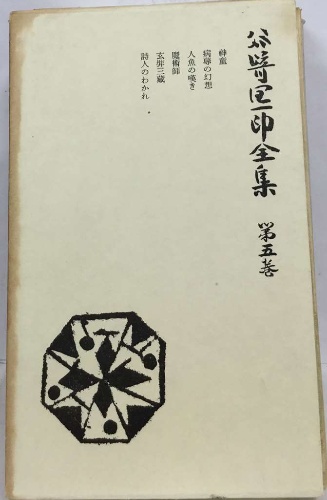 谷崎潤一郎全集 第五巻
神童
病蓐の幻想
人魚の嘆き
魔術師
玄弉三蔵
詩人のわかれ